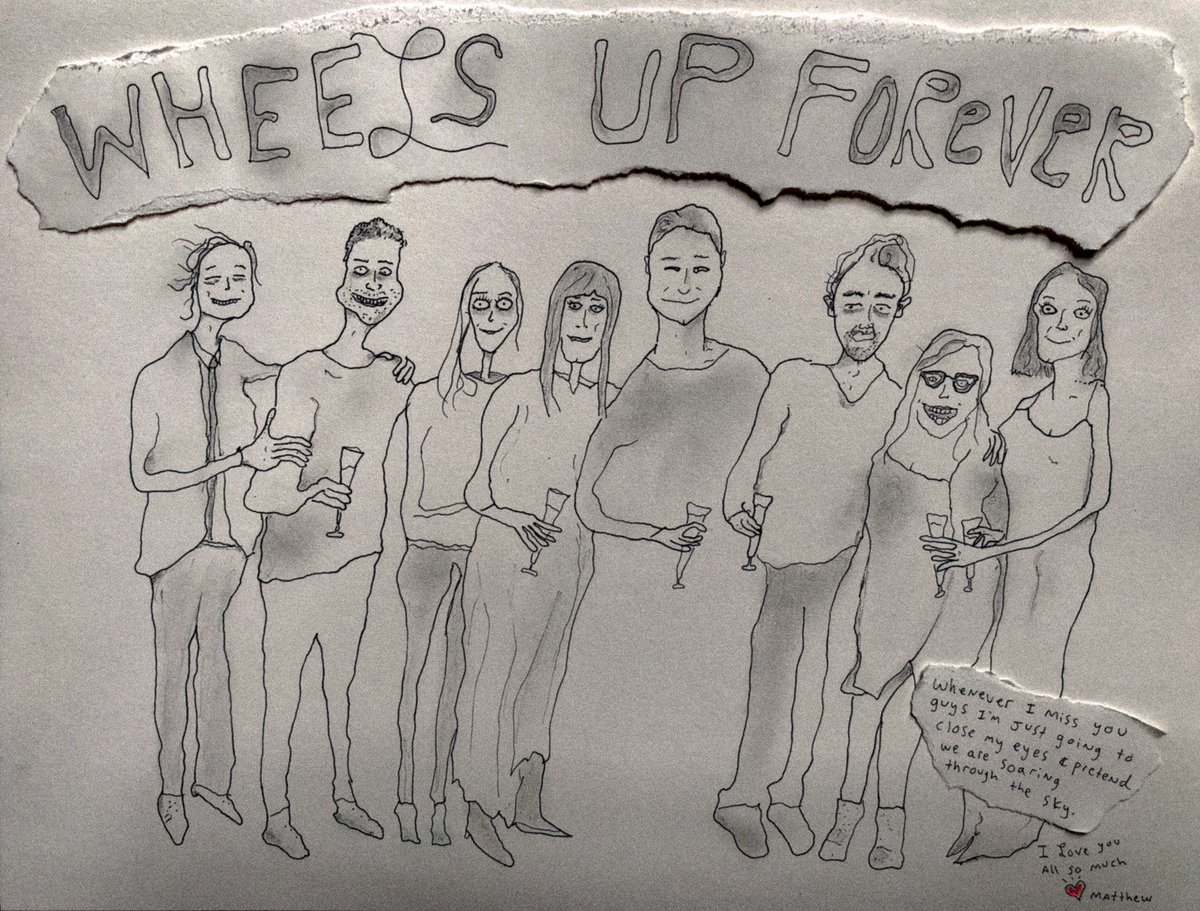 WHEELS UP FOREVER
WHENEVER I MISS YOU
guys I'm Just going to
close my eyes & pretend
we are soaring
through the sky.
I Love you
All so much
Matthew